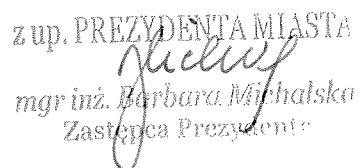 z up. PREZYDENTA MIASTA
mgr inż. Barbara Michalska
Zastępca Prezydenta